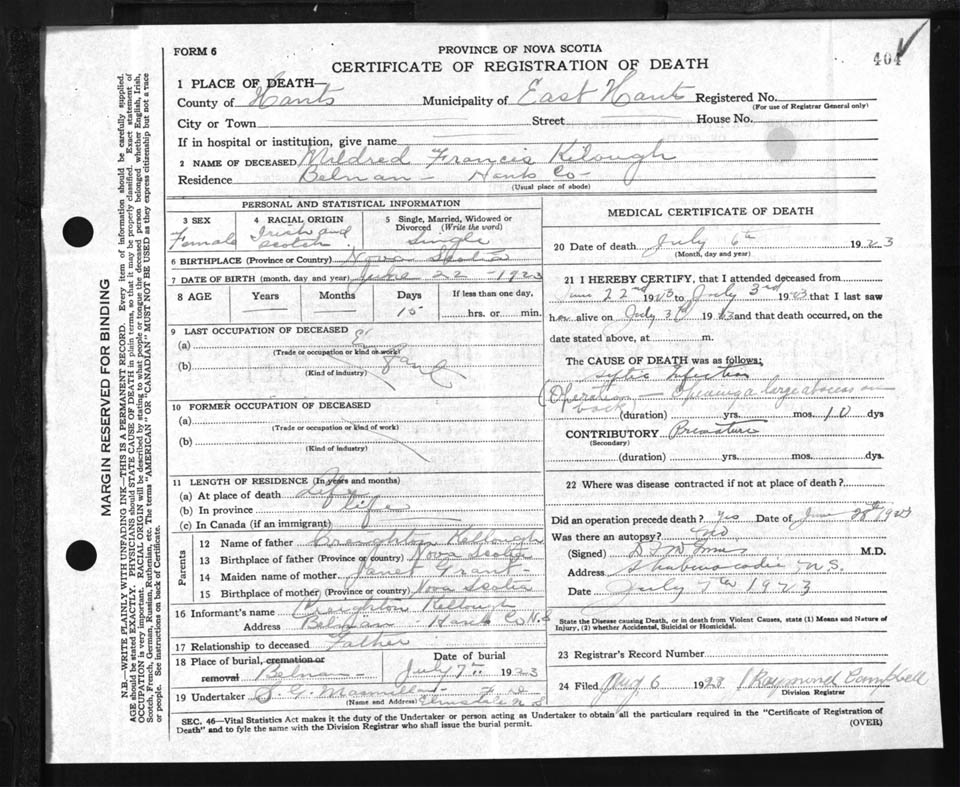 FORM 6
PROVINCE OF NOVA SCOTIA
404
CERTIFICATE OF REGISTRATION OF DEATH
1 PLACE OF DEATH—
County of Hants Municipality of East Hants Registered No.
(For use of Registrar General only)
City or Town Street House No.
If in hospital or institution, give name
2 NAME OF DECEASED Mildred Francis Kilough
Residence Belnan - Hants Co -
(Usual place of abode)
PERSONAL AND STATISTICAL INFORMATION
3 SEX
Female
4 RACIAL ORIGIN
Irish and
Scotch
5 Single, Married, Widowed or
Divorced (Write the word)
Single
6 BIRTHPLACE (Province or Country) Nova Scotia
7 DATE OF BIRTH (month, day and year) June 22 - 1923
8 AGE Years Months Days If less than one day,
15 hrs. or min.
9 LAST OCCUPATION OF DECEASED
(a)
(Trade or occupation or kind of work)
(b)
(Kind of industry)
10 FORMER OCCUPATION OF DECEASED
(a)
(Trade or occupation or kind of work)
(b)
(Kind of industry)
11 LENGTH OF RESIDENCE (In years and months)
(a) At place of death Life
(b) In province life
(c) In Canada (if an immigrant)
Parents
12 Name of father Creighton Kellough
13 Birthplace of father (Province or country) Nova Scotia
14 Maiden name of mother Janet Grant
15 Birthplace of mother (Province or country) Nova Scotia
16 Informant's name Creighton Kellough
Address Belnan - Hants Co N.S
17 Relationship to deceased Father
18 Place of burial, cremation or Date of burial
removal Belnan July 7th 1923
19 Undertaker
(Name and Address) Elmsdale N S
MEDICAL CERTIFICATE OF DEATH
20 Date of death July 6th 1923
(Month, day and year)
21 I HEREBY CERTIFY, that I attended deceased from
June 22nd 1923 to July 3rd 1923 that I last saw
her alive on July 3rd 1923 and that death occurred, on the
date stated above, at m.
The CAUSE OF DEATH was as follows;
Septic Infection
(Operation - Opening a large abscess on
back
(duration) yrs. mos. 10 dys
CONTRIBUTORY Premature
(Secondary)
(duration) yrs. mos. dys.
22 Where was disease contracted if not at place of death?
Did an operation precede death? Yes Date of June 28th 1923
Was there an autopsy? No
(Signed) M.D.
Address Shubenacadie N.S.
Date July 7th 1923
State the Disease causing Death, or in death from Violent Causes, state (1) Means and Nature of
Injury, (2) whether Accidental, Suicidal or Homicidal.
23 Registrar's Record Number
24 Filed Aug 6 1923 Raymond Campbell
Division Registrar
SEC. 46—Vital Statistics Act makes it the duty of the Undertaker or person acting as Undertaker to obtain all the particulars required in the "Certificate of Registration of
Death" and to fyle the same with the Division Registrar who shall issue the burial permit.
(OVER)
MARGIN RESERVED FOR BINDING
N.B.—WRITE PLAINLY WITH UNFADING INK—THIS IS A PERMANENT RECORD. Every item of information should be carefully supplied.
AGE should be stated EXACTLY. PHYSICIANS should STATE CAUSE OF DEATH in plain terms, so that it may be properly classified. Exact statement of
OCCUPATION is very important. RACIAL ORIGIN will be described by stating to what people or tongue the deceased person belonged whether English, Irish,
Scotch, French, German, Russian, Ruthenian, etc. The terms "AMERICAN" OR "CANADIAN" MUST NOT BE USED as they express citizenship but not a race
or people. See instructions on back of Certificate.